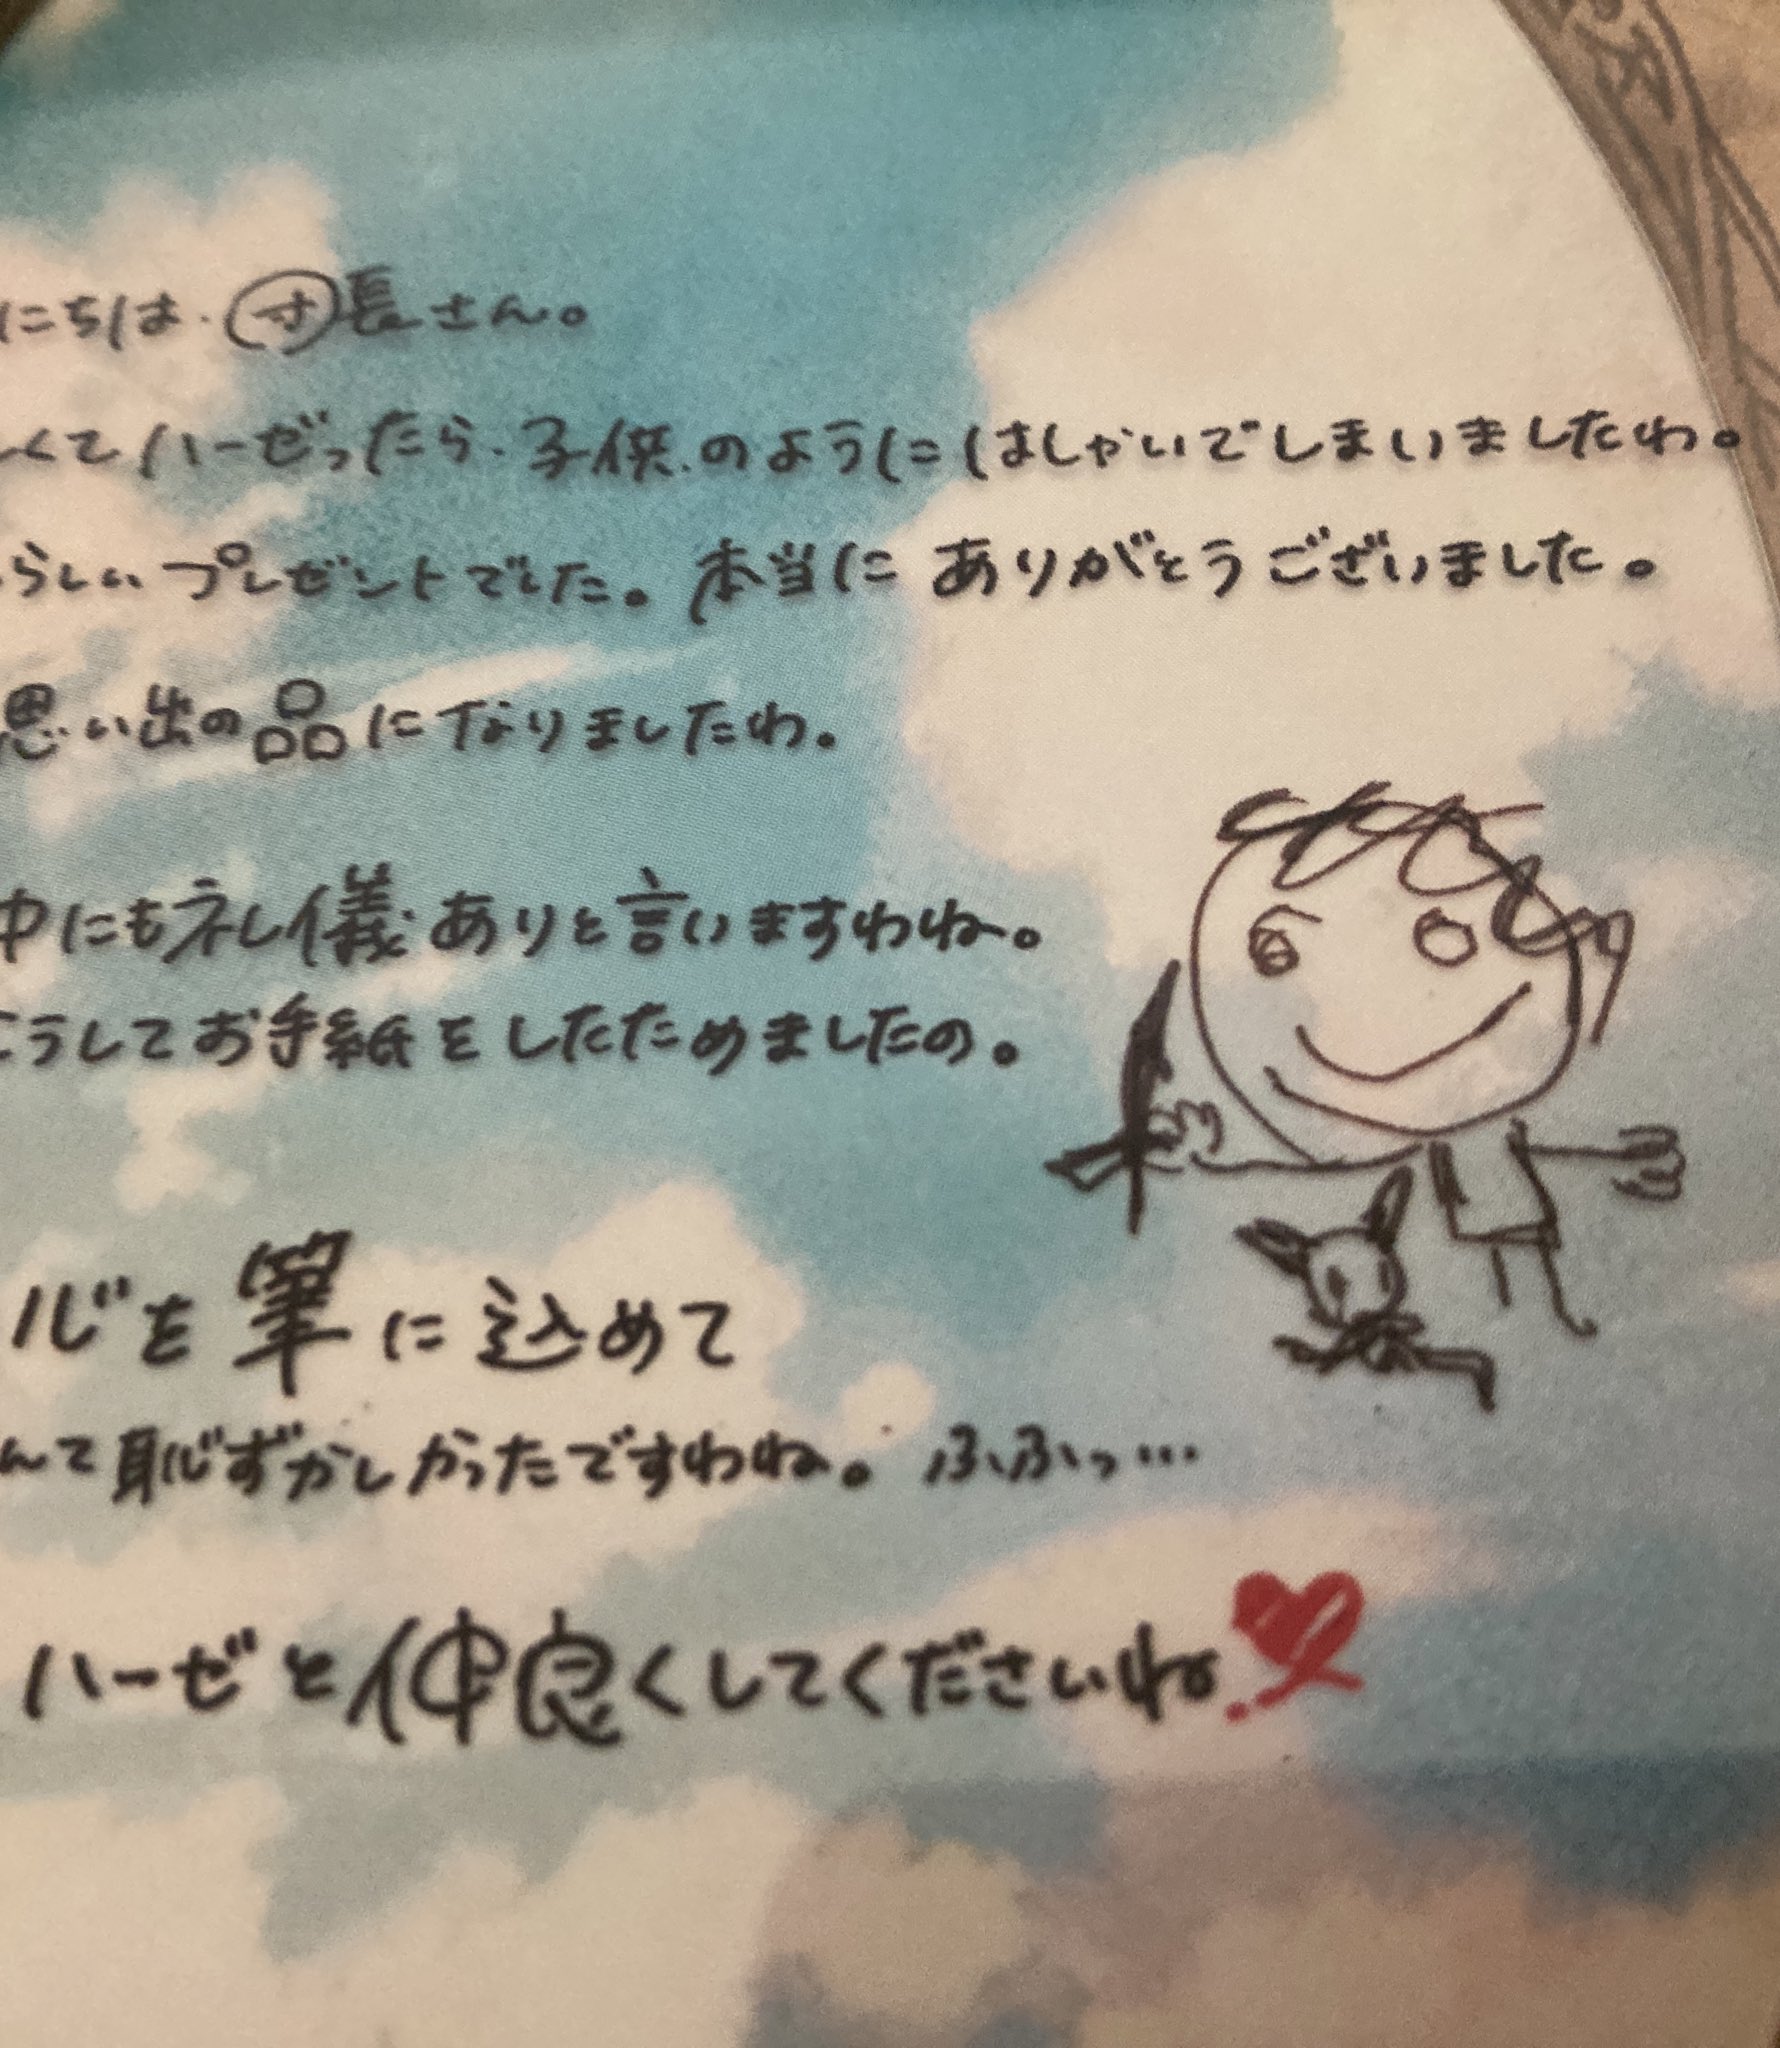 にちは.団長さん。
くてハーゼったら.子供.のようにはしゃいでしまいましたわ。
らしいプレゼントでした。本当にありがとうございました。
思い出の品になりましたわ。
中にも礼儀ありと言いますわね。
こうしてお手紙をしたためましたの。
心を筆に込めて
んて恥ずかしかったですわね。ふふっ…
ハーゼと仲良くしてくださいね